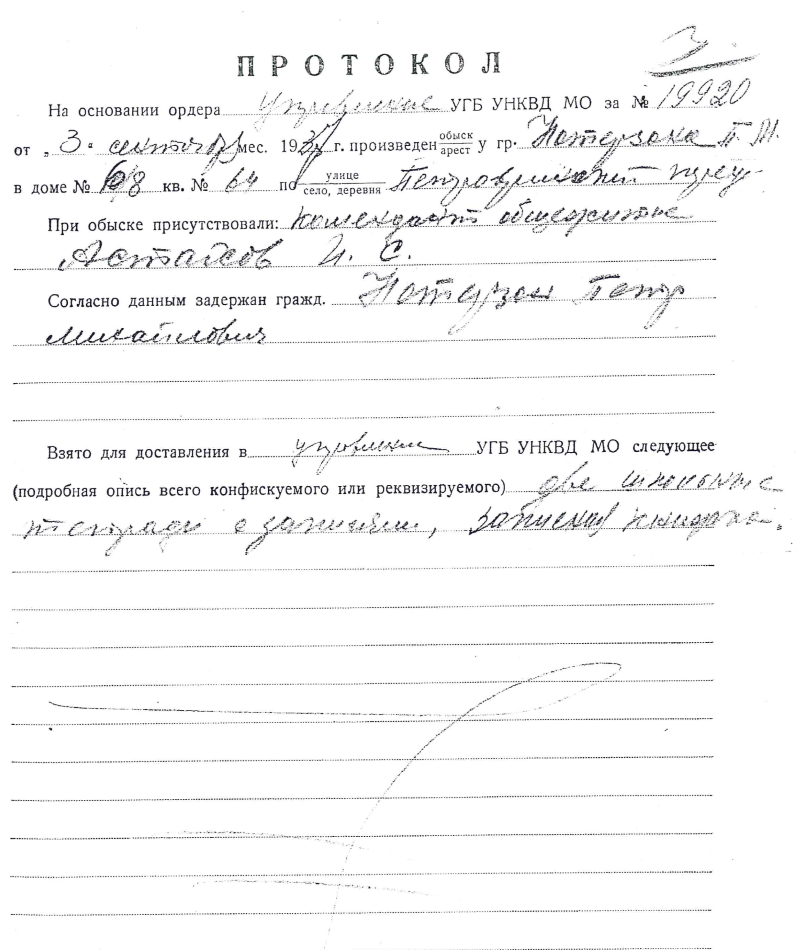 3
ПРОТОКОЛ
На основании ордера Управление УГБ УНКВД МО за № 19920
от „3" сентября мес. 193 г. произведен обыск арест у гр. П. М.
в доме № 68 кв. № 64 по улице село, деревня
При обыске присутствовали: комендант общежития
Астахов И. С.
Согласно данным задержан гражд. Петр
Михайлович
Взято для доставления в управление УГБ УНКВД МО следующее
(подробная опись всего конфискуемого или реквизируемого) две
тетради с записями, записная книжка.